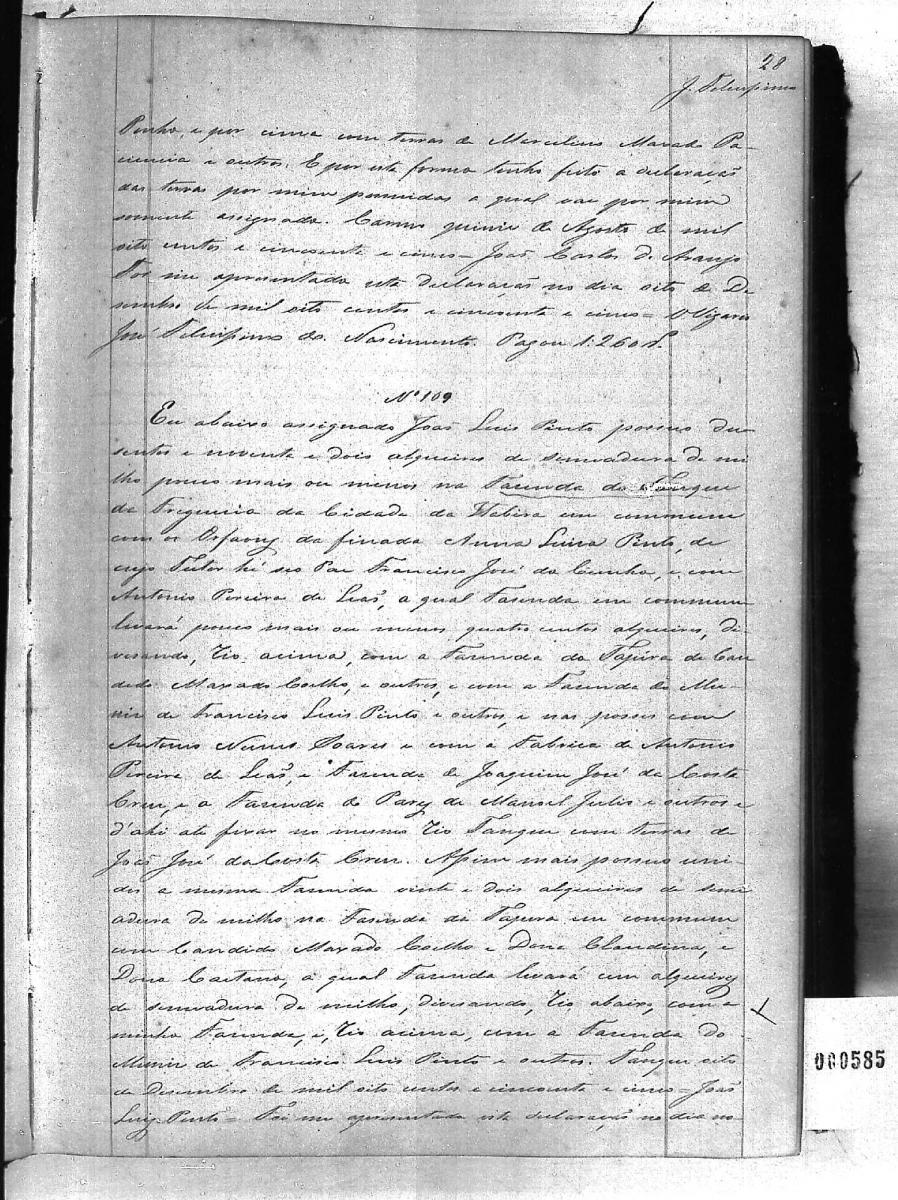 28
J. Felicissimo
Penha, e por cima com terras de Marcelino Maxado Pa-
e outros. E por esta forma tenho feito a declaraçaõ
das terras por mim possuidas a qual vai por mim
somente assignada. Carmo quinze de Agosto de mil
oito centos e cincoenta e cinco = Joaõ Carlos de Araujo
Foi me apresentada esta declaraçaõ no dia oito de De
sembro de mil oito centos e cincoenta e cinco = O Vigario
José Felicissimo do Nascimento. Pagou 1:260 r.s
Nº 109
Eu abaixo assignado Joaõ Luis Pinto possuo du
sentos e noventa e dois alqueires de semeadura de mi
lho pouco mais ou menos na Fasenda do Tanque
da Freguesia da Cidade da Itabira em commum
com os Orfaons da finada Anna Luisa Pinto, de
cujo Tutor hé seo Pae Francisco José da Cunha, e com
Antonio Pereira de Leaõ, a qual Fasenda em commum
levará pouco mais ou menos quatro centos alqueires, di-
visando, Rio acima, com a Fasenda da Tapera de Can
dido Maxado Coelho, e outros, e com a Fasenda do
de Francisco Luis Pinto e outros, e nas posses com
Antonio Nunes Soares e com a Fabrica de Antonio
Pereira de Leaõ, e Fasenda de Joaquim José da Costa
Cruz, e a Fasenda do Pary de Manoel Julio e outros e
d'ahi até fixar no mesmo Rio Tanque com terras de
Joaõ José da Costa Cruz. Assim mais possuo uni-
dos a mesma Fasenda vinte e dois alqueires de seme
adura de milho na Fasenda da Tapera em commum
com Candido Maxado Coelho e Dona Claudina, e
Dona Caetana, a qual Fasenda levará cem alqueires
de semeadura de milho, divisando, Rio abaixo, com a
minha Fasenda, e, Rio acima, com a Fasenda do
de Francisco Luis Pinto e outros. Tanque oito
de Desembro de mil oito centos e cincoenta e cinco = Joaõ
Luiz Pinto = Foi me apresentada esta declaraçaõ no dia no
000585